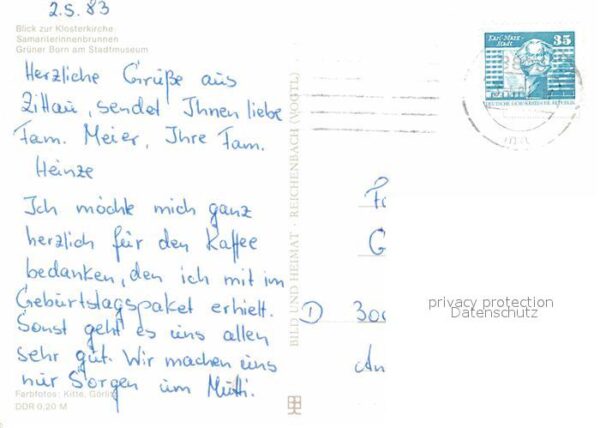 2.5.83
Blick zur Klosterkirche
Samariterinnenbrunnen
Grüner Born am Stadtmuseum
Herzliche Grüße aus
Zittau, sendet Ihnen liebe
Fam. Meier, Ihre Fam.
Heinze
Ich möchte mich ganz
herzlich für den Kaffee
bedanken, den ich mit im
Geburtstagspaket erhielt.
Sonst geht es uns allen
sehr gut. Wir machen uns
nur Sorgen um Mutti.
Farbfotos: Kitte, Görlitz
DDR 0,20 M
BILD UND HEIMAT · REICHENBACH (VOGTL)
Karl-Marx-Stadt
35
DEUTSCHE DEMOKRATISCHE REPUBLIK
Fa
G
D 300
An
privacy protection
Datenschutz